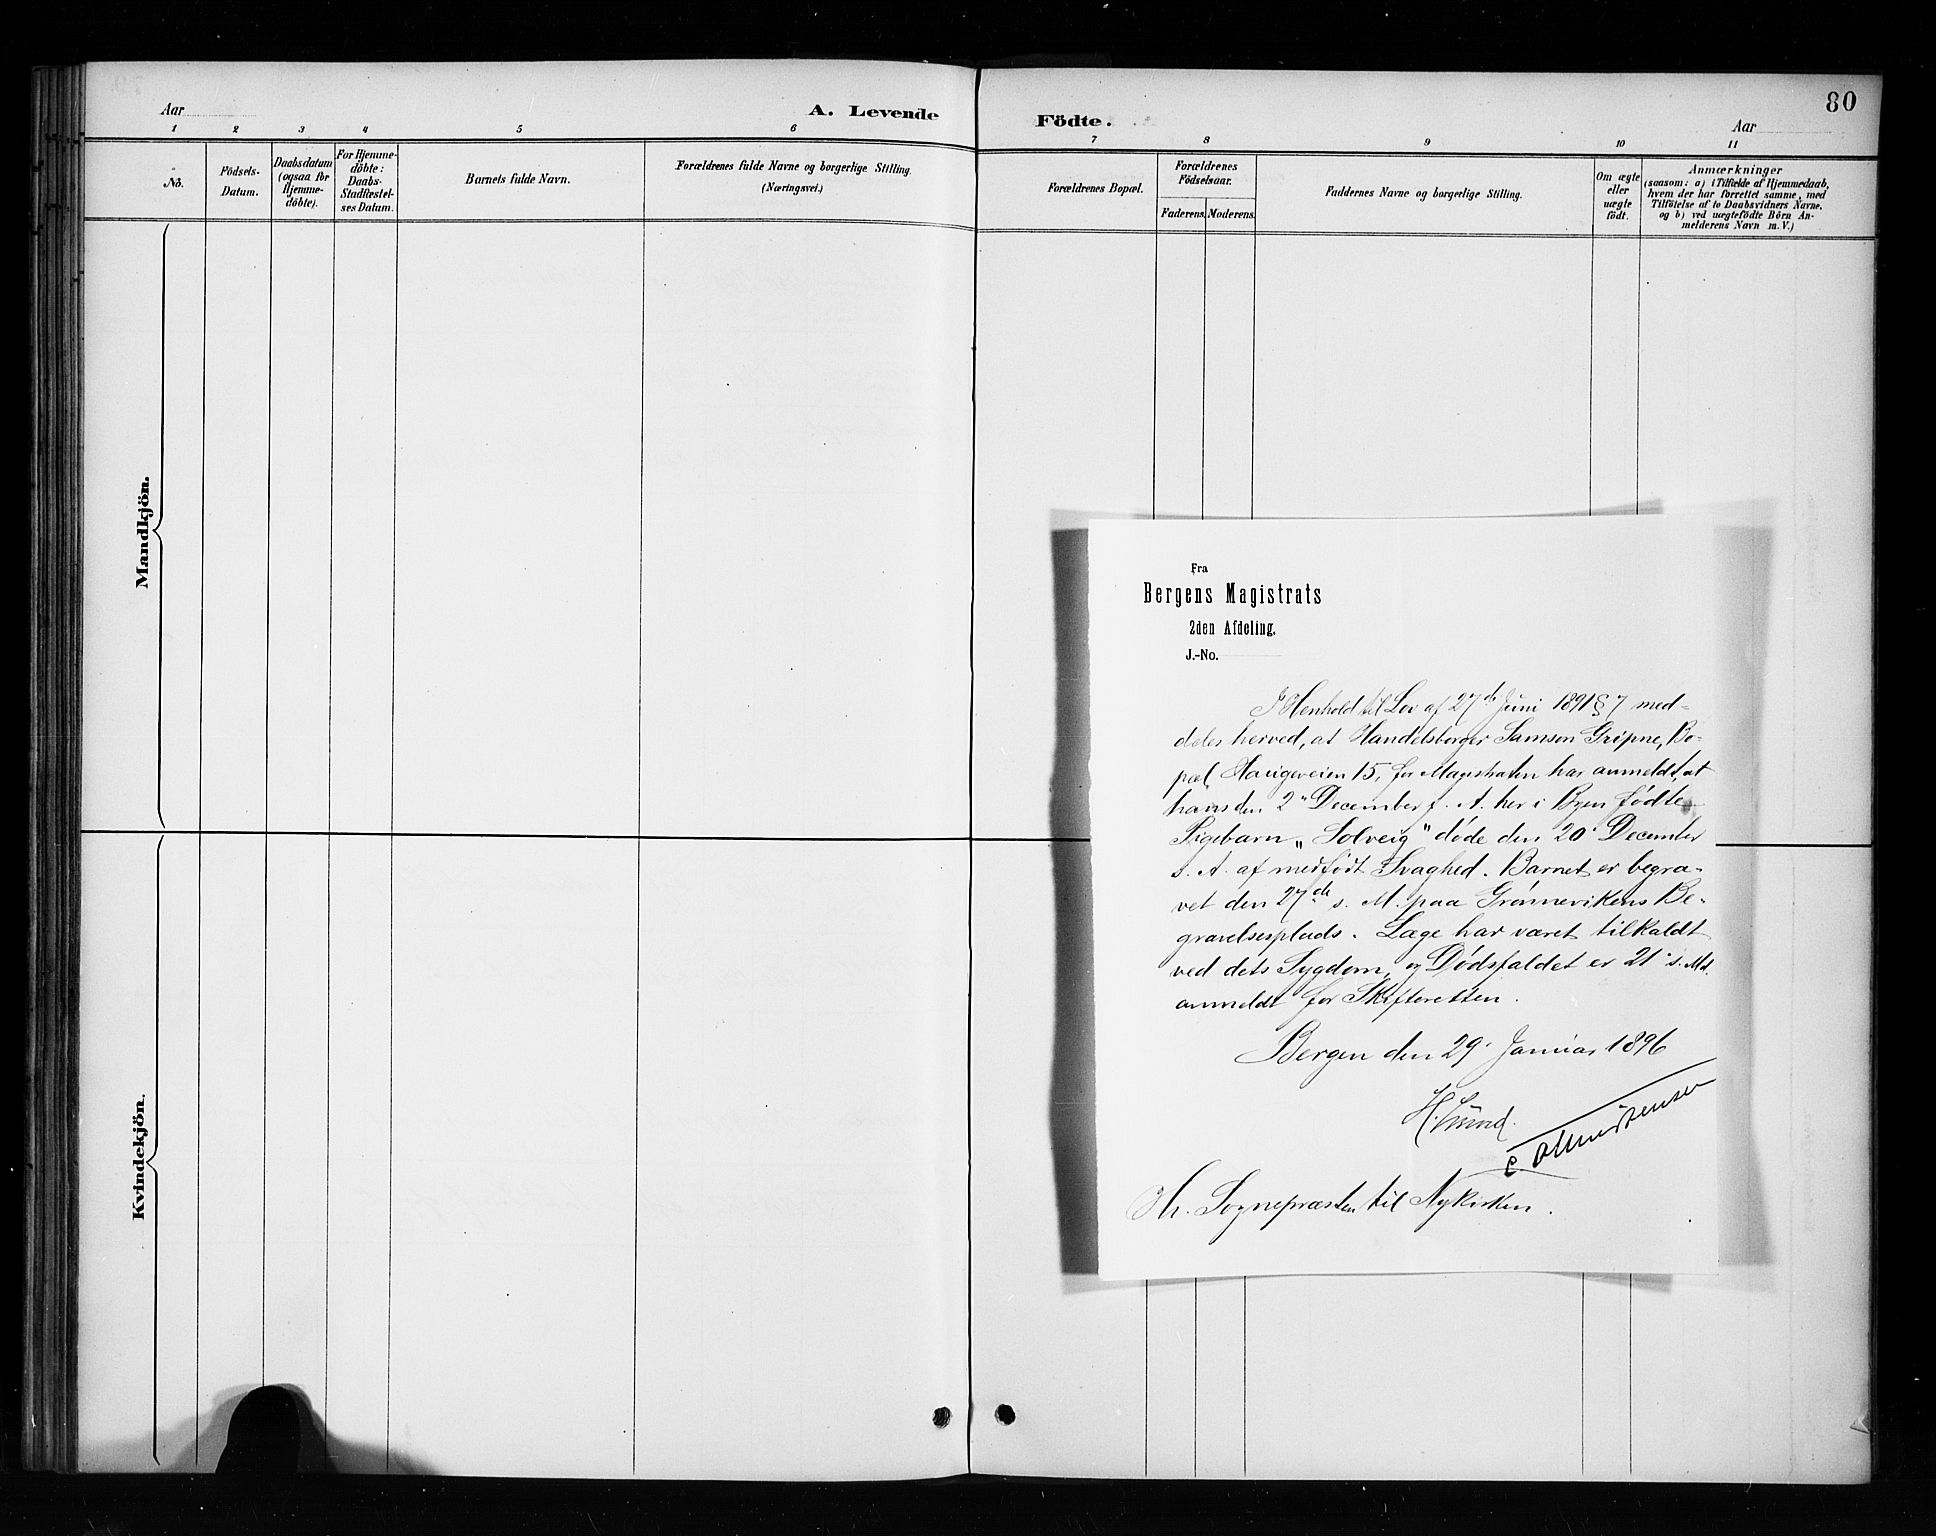 Aar
A. Levende
Födte.
Aar
80
1 2 3 4 5 6 7 8 9 10 11
No.
Födsels-
Datum.
Daabsdatum
(ogsaa for
Hjemme-
döbte).
For Hjemme-
döbte:
Daabs-
Stadfæstel-
ses Datum.
Barnets fulde Navn.
Forældrenes fulde Navne og borgerlige Stilling.
(Næringsvei.)
Forældrenes Bopæl.
Forældrenes
Födselsaar.
Faderens. Moderens.
Faddernes Navne og borgerlige Stilling.
Om ægte
eller
uægte
födt.
Anmærkninger
(saasom: a) i Tilfælde af Hjemmedaab,
hvem der har forrettet samme, med
Tilföielse af to Daabsvidners Navne,
og b) ved uægtefödte Börn An-
melderens Navn m. V.)
Mandkjön.
Kvindekjön.
Fra
Bergens Magistrats
2den Afdeling.
J.-No.
I Henhold til Lov af 27de Juni 1891 § 7 med-
deles herved, at Handelsborger Samson Gripne, Bo-
pæl Haugeveien 15, for Magistraten har anmeldt, at
hans den 2" December f. A. her i Byen fødte
Pigebarn „Solveig" døde den 20' December
s. A. af medfødt Svaghed. Barnet er begra-
vet den 27de s. M. paa Grønnevikens Be-
gravelsesplads. Læge har været tilkaldt
ved dets Sygdom, og Dødsfaldet er 21' s. Md.
anmeldt for Skifteretten.
Bergen den 29' Januar 1896
Hr. Sognepræsten til Nykirken.